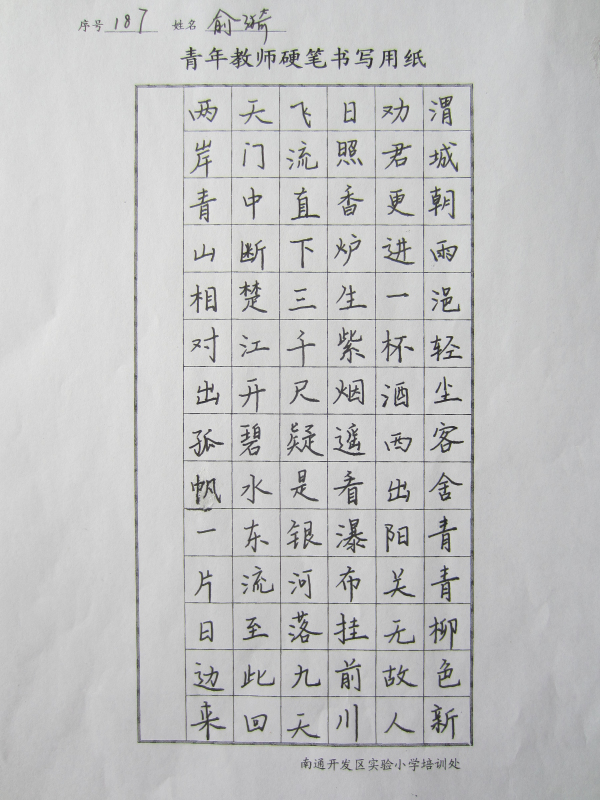 序号 187 姓名 俞琦
青年教师硬笔书写用纸
渭城朝雨浥轻尘客舍青青柳色新
劝君更进一杯酒西出阳关无故人
日照香炉生紫烟遥看瀑布挂前川
飞流直下三千尺疑是银河落九天
天门中断楚江开碧水东流至此回
两岸青山相对出孤帆一片日边来
南通开发区实验小学培训处